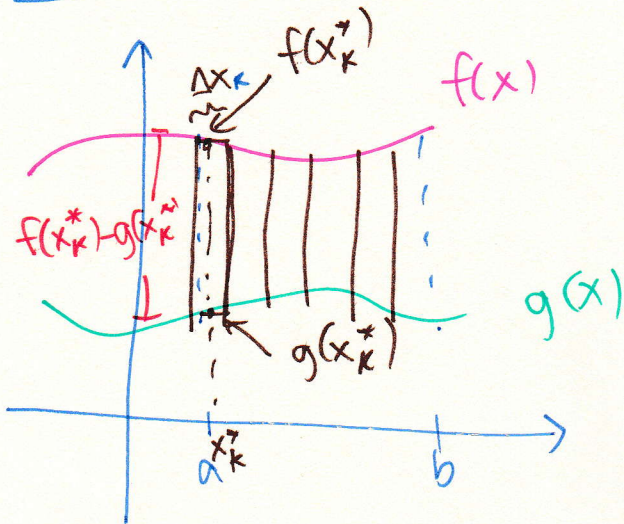 f(x*k)
Δxk
f(x)
f(x*k)-g(x*k)
g(x)
g(x*k)
x*k
a
b